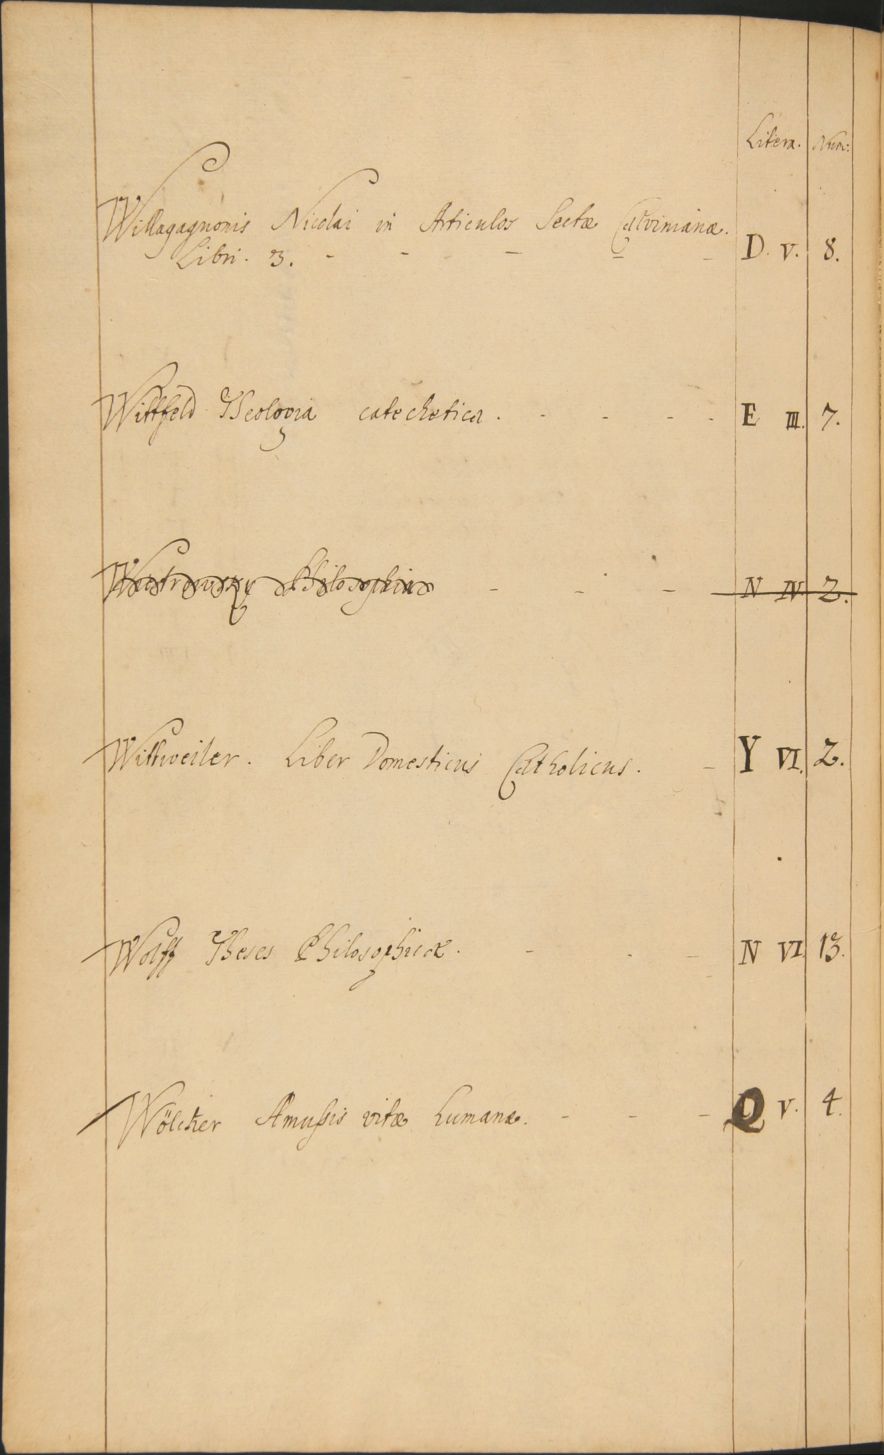 Litera. Num:
Willagagnonis Nicolai in Articulos Sectæ Calvinianæ.
Libri. 3. - - - - - - D. V. 8.
Wittfeld Theologia catechetica. - - - - E III. 7.
Philosophia - - - N IV. 2.
Wittweiler. Liber Domesticus Catholicus. - Y VI. 2.
Wolff Theses Philosophicæ. - - - N VI. 13.
Wölcker Amussis vitæ humanæ. - - - Q V. 4.